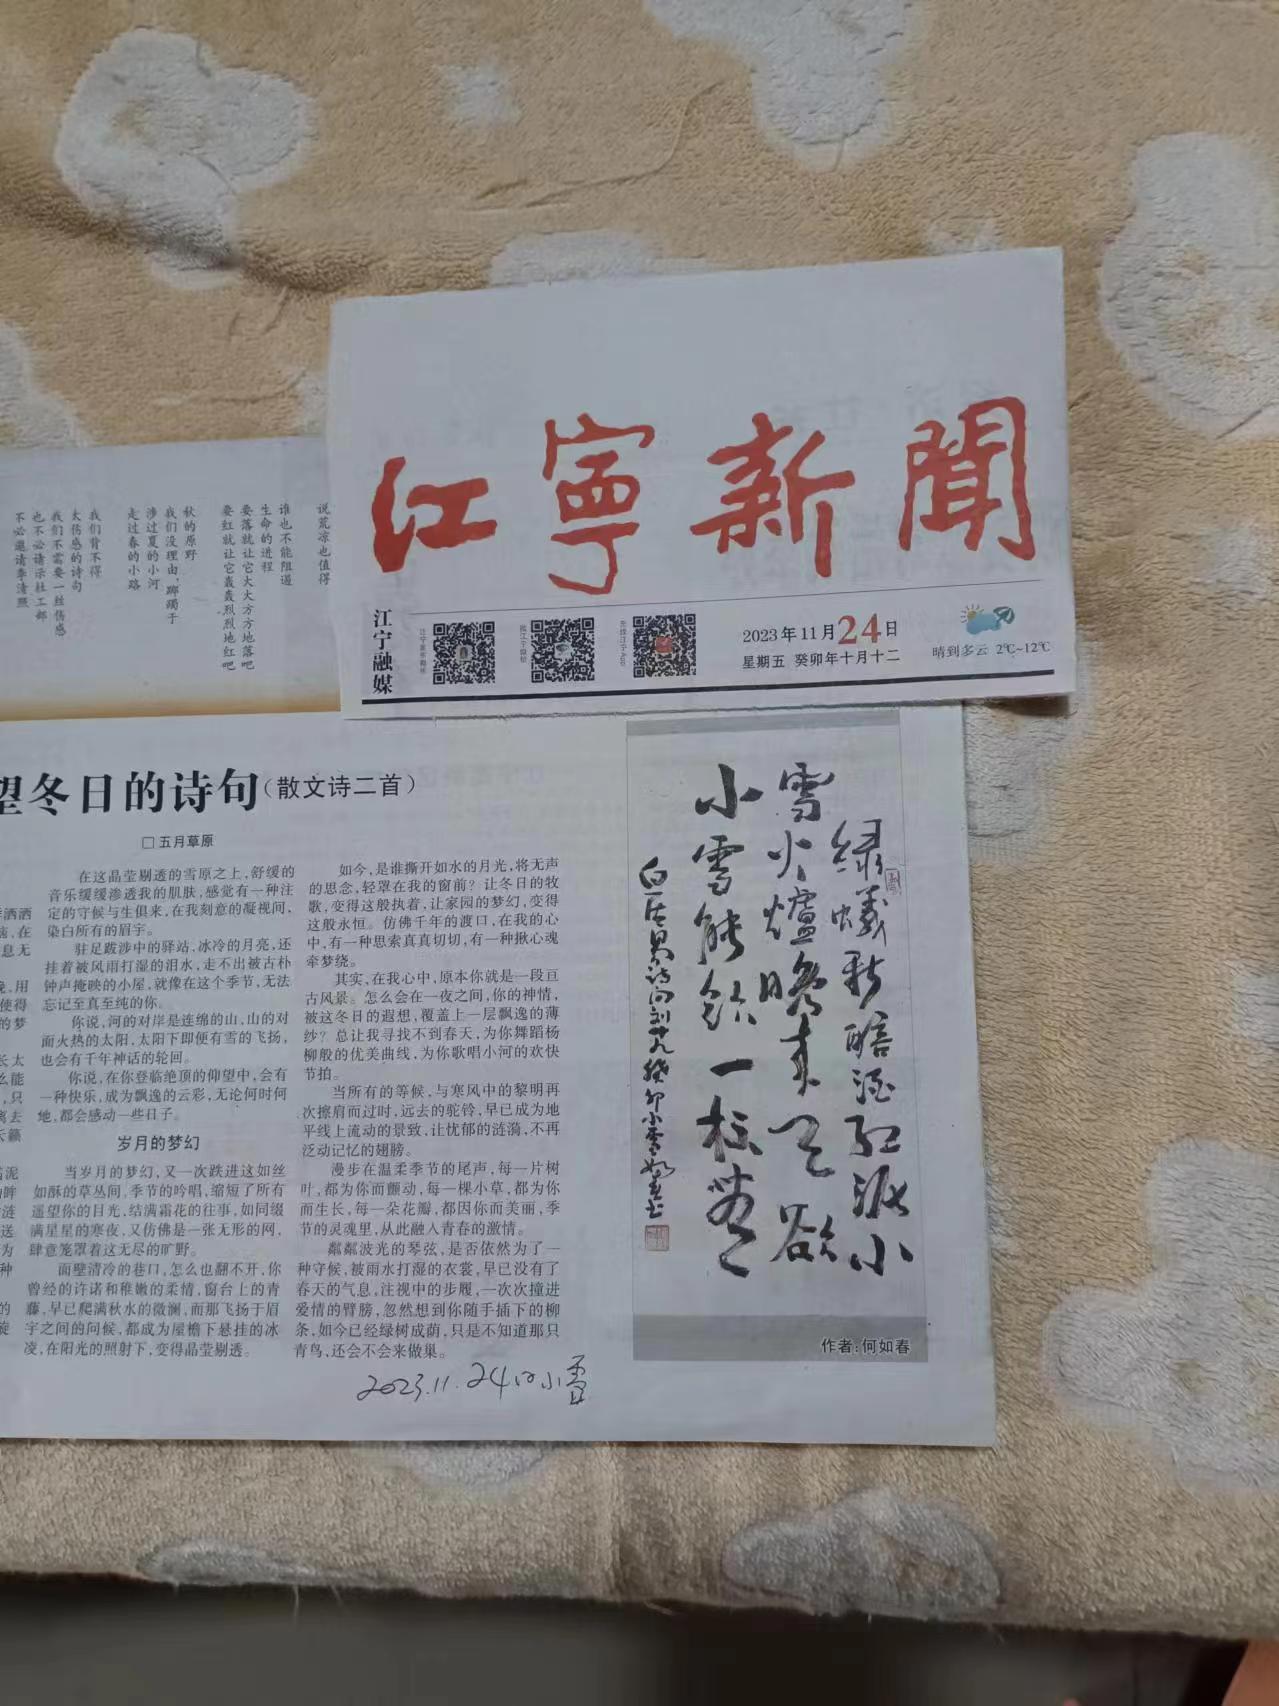 江寧新聞
江宁融媒
2023年11月24日
星期五 癸卯年十月十二
晴到多云 2℃~12℃
说荒凉也值得
谁也不能阻遏
生命的进程
要落就让它大大方方地落吧
要红就让它轰轰烈烈地红吧
秋的原野
我们没理由,踯躅于
涉过夏的小河
走过春的小路
我们背不得
太伤感的诗句
我们不需要一丝伤感
也不必请示杜工部
不必邀请李清照
望冬日的诗句(散文诗二首)
□五月草原
在这晶莹剔透的雪原之上,舒缓的
音乐缓缓渗透我的肌肤,感觉有一种注
定的守候与生俱来,在我刻意的凝视间,
染白所有的眉宇。
驻足跋涉中的驿站,冰冷的月亮,还
挂着被风雨打湿的泪水,走不出被古朴
钟声掩映的小屋,就像在这个季节,无法
忘记至真至纯的你。
你说,河的对岸是连绵的山,山的对
面火热的太阳,太阳下即便有雪的飞扬,
也会有千年神话的轮回。
你说,在你登临绝顶的仰望中,会有
一种快乐,成为飘逸的云彩,无论何时何
地,都会感动一些日子。
岁月的梦幻
当岁月的梦幻,又一次跌进这如丝
如酥的草丛间,季节的吟唱,缩短了所有
遥望你的目光,结满霜花的往事,如同缀
满星星的寒夜,又仿佛是一张无形的网,
肆意笼罩着这无尽的旷野。
面壁清冷的巷口,怎么也翻不开,你
曾经的许诺和稚嫩的柔情,窗台上的青
藤,早已爬满秋水的微澜,而那飞扬于眉
宇之间的问候,都成为屋檐下悬挂的冰
凌,在阳光的照射下,变得晶莹剔透。
如今,是谁撕开如水的月光,将无声
的思念,轻罩在我的窗前?让冬日的牧
歌,变得这般执着,让家园的梦幻,变得
这般永恒。仿佛千年的渡口,在我的心
中,有一种思索真真切切,有一种揪心魂
牵梦绕。
其实,在我心中,原本你就是一段亘
古风景。怎么会在一夜之间,你的神情,
被这冬日的遐想,覆盖上一层飘逸的薄
纱?总让我寻找不到春天,为你舞蹈杨
柳般的优美曲线,为你歌唱小河的欢快
节拍。
当所有的等候,与寒风中的黎明再
次擦肩而过时,远去的驼铃,早已成为地
平线上流动的景致,让忧郁的涟漪,不再
泛动记忆的翅膀。
漫步在温柔季节的尾声,每一片树
叶,都为你而颤动,每一棵小草,都为你
而生长,每一朵花瓣,都因你而美丽,季
节的灵魂里,从此融入青春的激情。
粼粼波光的琴弦,是否依然为了一
种守候,被雨水打湿的衣裳,早已没有了
春天的气息,注视中的步履,一次次撞进
爱情的臂膀,忽然想到你随手插下的柳
条,如今已经绿树成荫,只是不知道那只
青鸟,还会不会来做巢。
2023.11.24日小雪
绿蚁新醅酒红泥小
雪火爐晚来天欲
小雪能饮一杯无
白居易诗问刘十九癸卯小雪如春书
作者:何如春